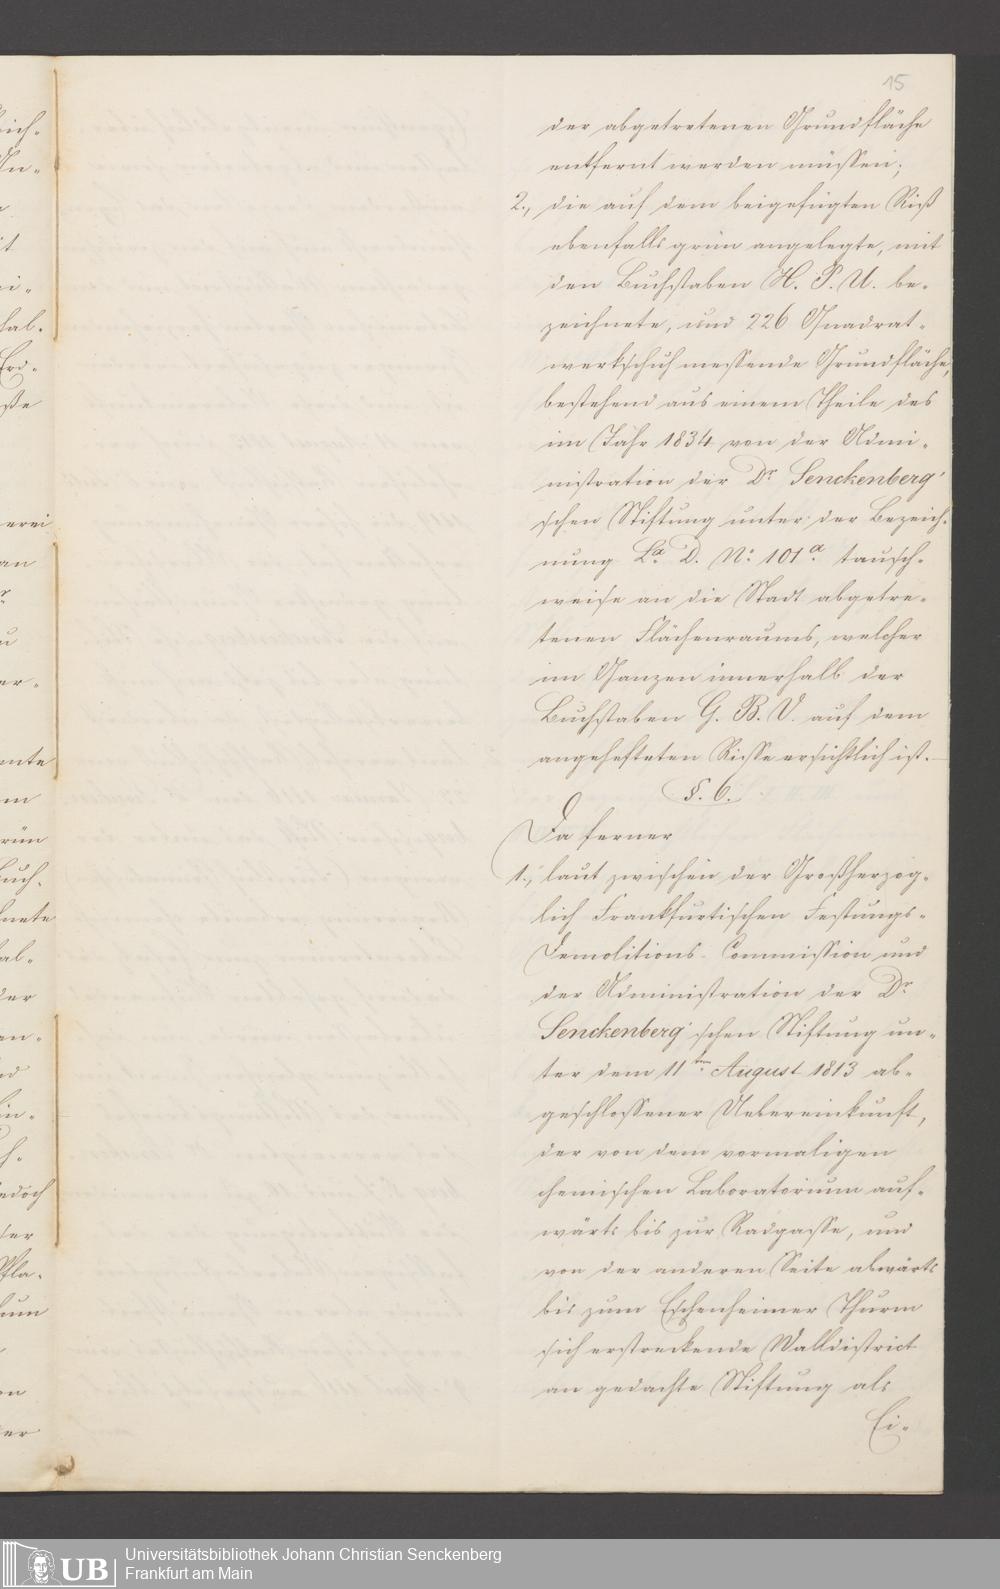 15
der abgetretenen Grundfläche
entfernt werden müssen;
2., die auf dem beigefügten Riß
ebenfalls grün angelegte, mit
den Buchstaben H. P. U. be-
zeichnete, und 226 Quadrat-
werkschuh messende Grundfläche,
bestehend aus einem Theile des
im Jahr 1834 von der Admi-
nistration der Dr Senckenberg'
schen Stiftung unter der Bezeich-
nung La. D. No. 101a. tausch-
weise an die Stadt abgetre-
tenen Flächenraums, welcher
im Ganzen innerhalb der
Buchstaben G. B. V. auf dem
angehefteten Risse ersichtlich ist.
§. 6.
Da ferner
1., laut zwischen der Großherzog-
lich Frankfurtischen Festungs-
Demolitions-Commission und
der Administration der Dr
Senckenberg'schen Stiftung un-
ter dem 11ten August 1813 ab-
geschlossener Uebereinkunft,
der von dem vormaligen
chemischen Laboratorium auf-
wärts bis zur Radgasse, und
von der anderen Seite abwärts
bis zum Eschenheimer Thurm
sich erstreckende Walldistrict
an gedachte Stiftung als
Ei-
erei
an
er-
nte
rün
Buch-
nete
al-
der
an-
edoch
Pfla-
UB
Universitätsbibliothek Johann Christian Senckenberg
Frankfurt am Main